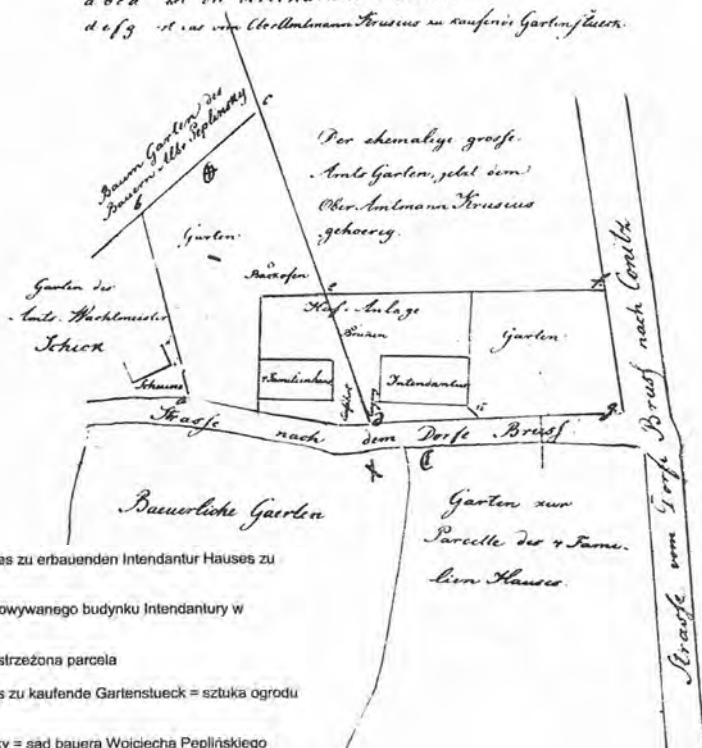 a b c d ist
d e f g ist das vom Ober Amtmann Krusius zu kaufende Gartenstueck.
c
Baum Garten des
Bauern Albr. Peplinsky
b
Der ehemalige grosse
Amts Garten, jetzt dem
Ober Amtmann Krusius
gehoerig.
Garten
Garten des
Amts Wachtmeister
Schick
Backofen
e
f.
Hof-Anlage
Brunnen
Garten
4 Familienhaus
Intendantur
Scheune
a
d
g.
Strasse nach dem Dorfe Bruss
Strasse vom Dorfe Bruss nach Conitz
Baeuerliche Gaerten
Garten zur
Parcelle des 4 Fami-
lien Hauses.
es zu erbauenden Intendantur Hauses zu
owywanego budynku Intendantury w
strzeżona parcela
s zu kaufende Gartenstueck = sztuka ogrodu
ky = sad bauera Wojciecha Peplińskiego